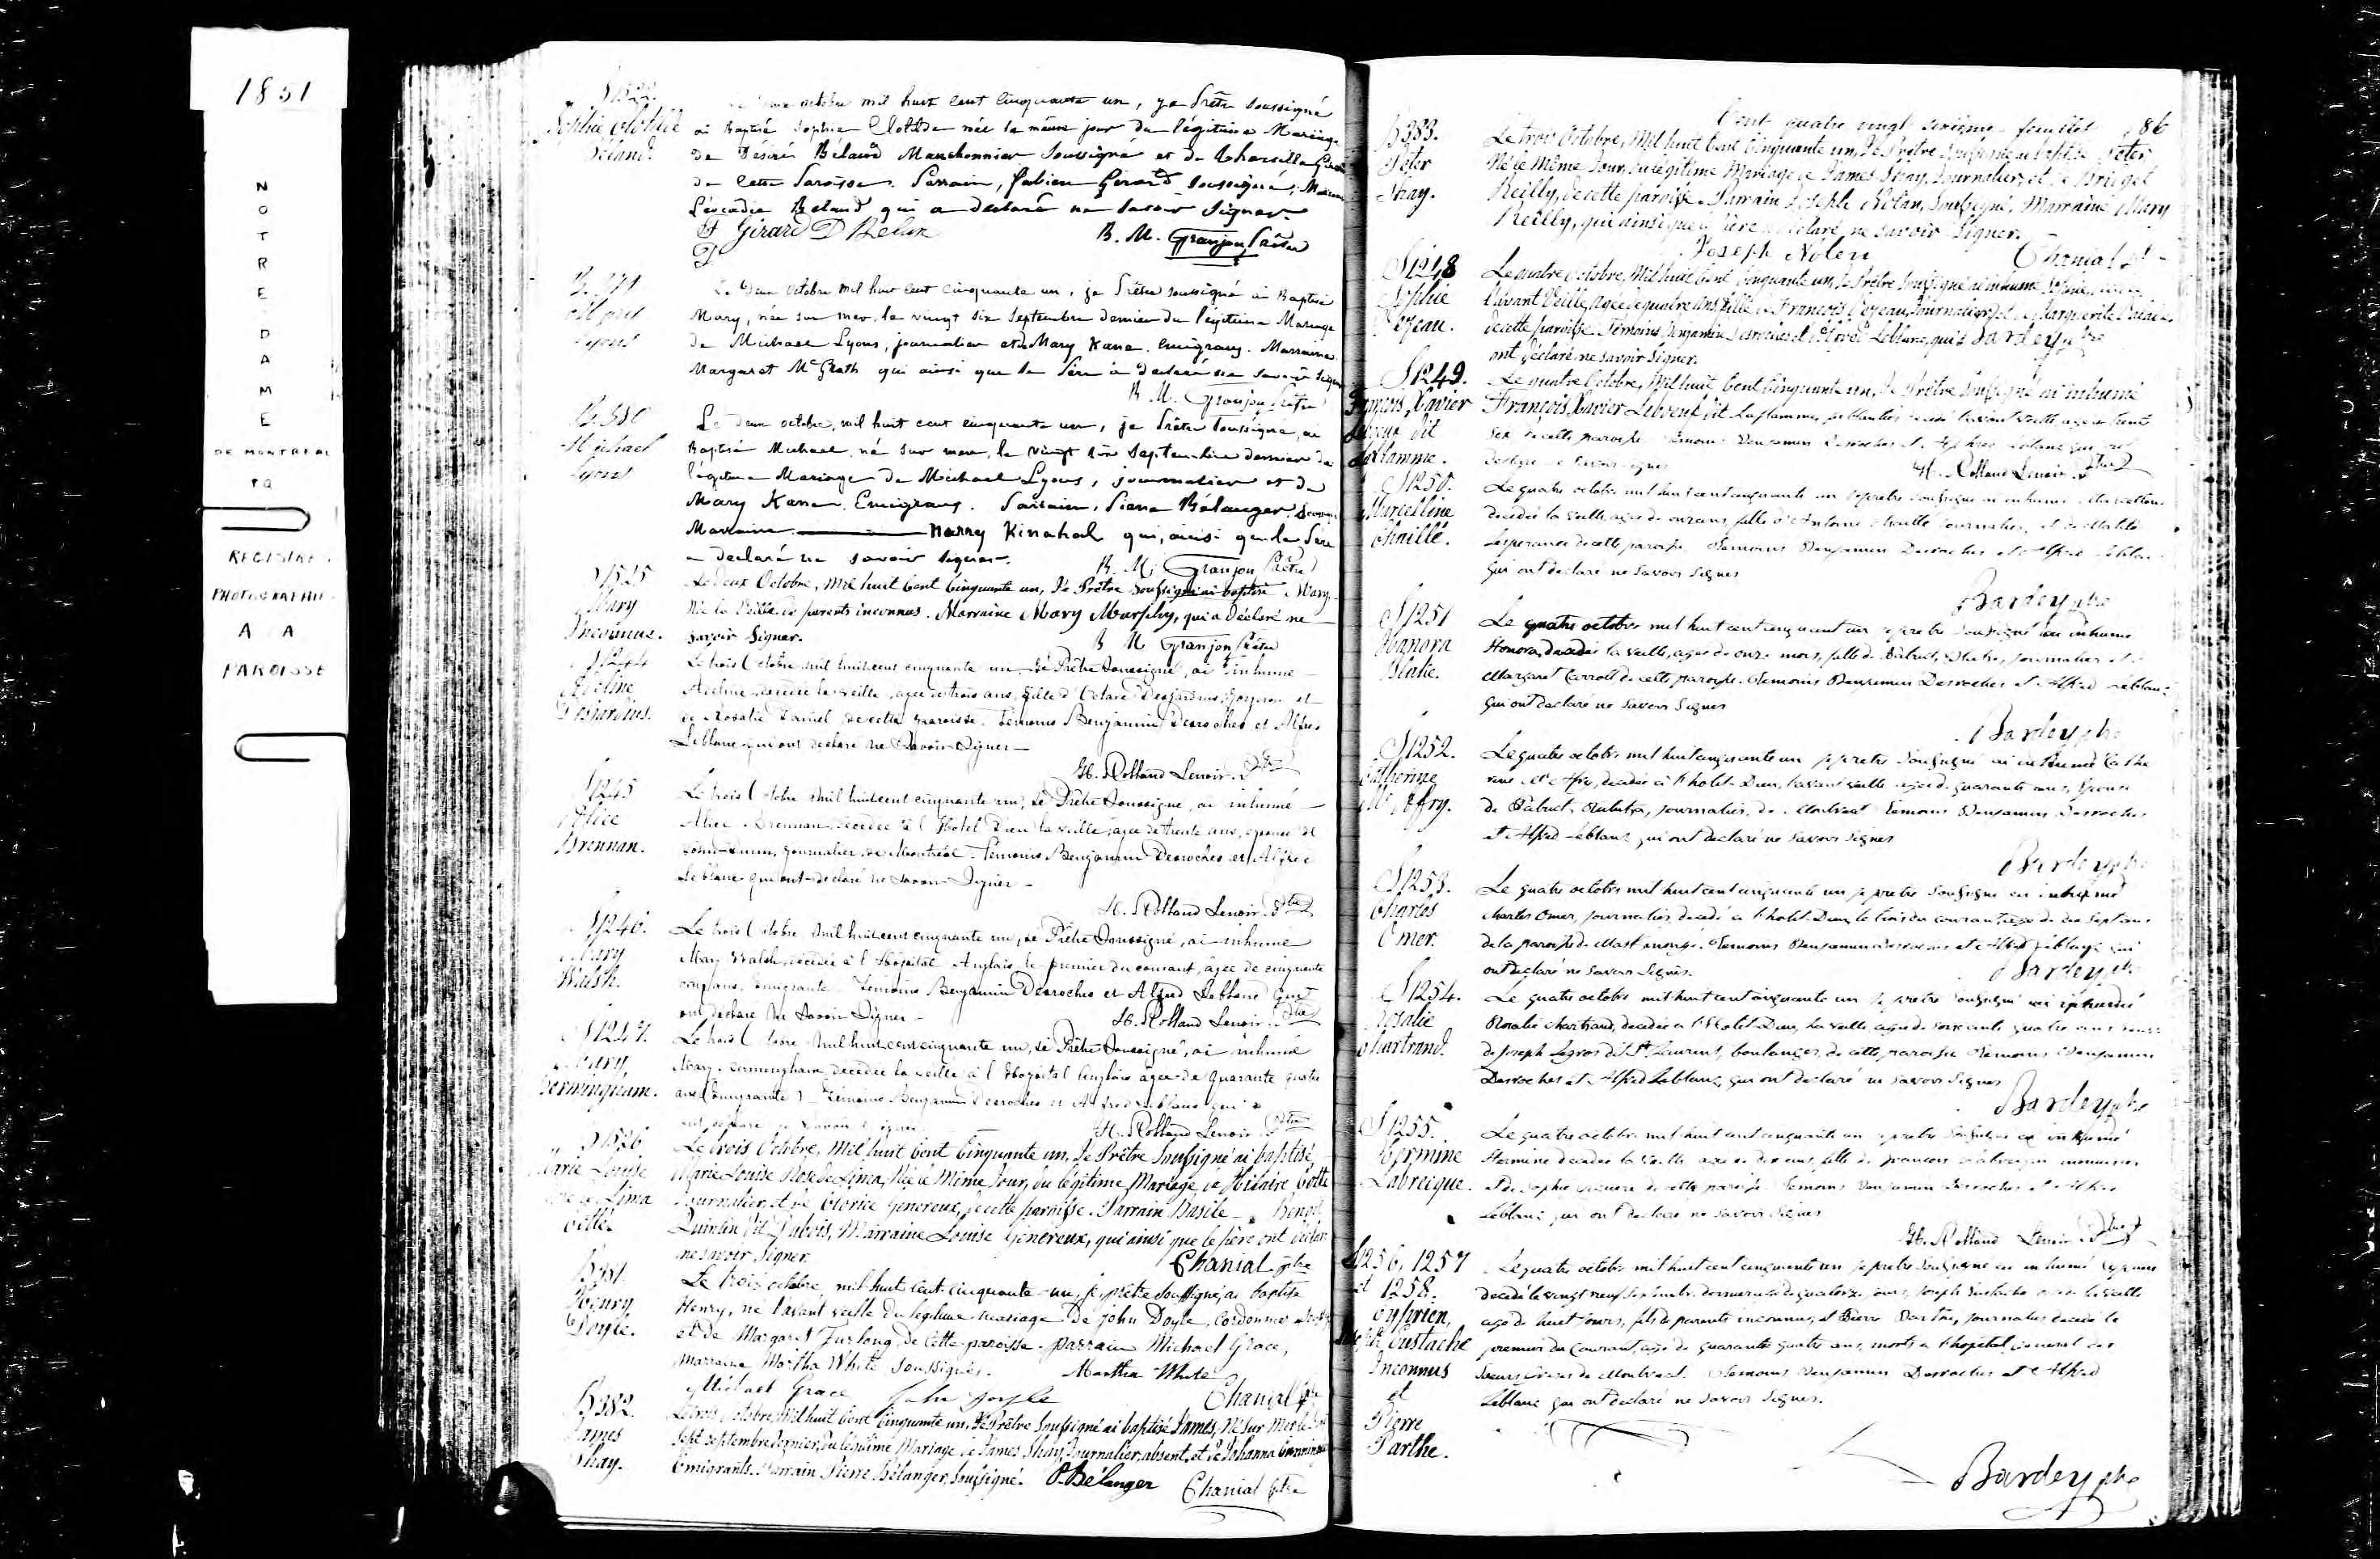 1851
NOTRE DAME
DE MONTREAL
REGISTRE
PHOTOGRAPHIE
A A
PAROISSE
Sophie Clotilde
Béland.
octobre mil huit cent cinquante un, je Prêtre soussigné
ai Baptisé Sophie Clotilde née le même jour du légitime Mariage
de Désiré Béland soussigné et de
de cette Paroisse. Parrain, Fabien Girard soussigné, Marraine
Léocadie Beland qui a déclaré ne savoir signer.
Girard D Belan
R. M. Granjon Prêtre
Lyons
Le deux octobre mil huit cent cinquante un, je Prêtre soussigné ai Baptisé
Mary, née sur mer, le vingt six Septembre dernier du légitime Mariage
de Michael Lyons, journalier et de Mary Kane, Emigrans. Marraine
Margaret McGrath qui ainsi que le Père a déclaré ne savoir signer
R. M. Granjon Prêtre
B. 380
Michael
Lyons
Le deux octobre, mil huit cent cinquante un, je Prêtre Soussigné, ai
Baptisé Michael, né sur mer, le vingt six Septembre dernier du
légitime Mariage de Michael Lyons, journalier et de
Mary Kane, Emigrans. Parrain, Pierre Bélanger
Marraine Kinahal qui, ainsi que le Père
a declaré ne savoir signer.
R. M. Granjon Prêtre
1525
Mary
Inconnue.
Le deux Octobre, Mil huit Cent Cinquante un, Je Prêtre Soussigné ai baptisé Mary,
Née la Veille de parents inconnus. Marraine Mary Murphy, qui a déclaré ne
savoir Signer.
R M Granjon Prêtre
S1244
Desjardins.
Le trois Octobre mil huit cent cinquante un, Je Prêtre Soussigné, ai inhumé
décédée la veille, agée de trois ans, fille d'Octave Desjardins, et
de Rosalie Daniel, de cette paroisse. Témoins Benjamin Desroches et Alfred
Leblanc qui ont déclaré ne Savoir Signer
H. Rolland Lenoir. Ptre
S1245
Alice
Brennan.
Le trois Octobre Mil huit cent cinquante un, Je Prêtre Soussigné, ai inhumé
Alice Brennan, décédée à l'Hôtel Dieu la veille, agée de trente ans, épouse de
journalier, de Montréal. Témoins Benjamin Desroches et Alfred
Leblanc qui ont déclaré ne Savoir Signer
H. Rolland Lenoir. Ptre
S1246.
Mary
Walsh.
Le trois Octobre Mil huit cent cinquante un, Je Prêtre Soussigné, ai inhumé
Mary Walsh, décédée à l'Hôpital Anglais, le premier du courant, âgée de cinquante
cinq ans, émigrante. Témoins Benjamin Desroches et Alfred Leblanc qui
ont déclaré ne Savoir Signer
H. Rolland Lenoir. Ptre
S1247.
Mary
Bermingham.
Le trois Octobre Mil huit cent cinquante un, Je Prêtre Soussigné, ai inhumé
Mary Bermingham, décédée la veille à l'Hôpital Anglais agée de quarante quatre
ans (émigrante) Témoins Benjamin Desroches et Alfred Leblanc qui
ont déclaré ne Savoir Signer
H. Rolland Lenoir. Ptre
1526
Marie Louise
Rose de Lima
Le trois Octobre, Mil huit Cent Cinquante un, Je Prêtre Soussigné ai baptisé
Marie Louise Rose de Lima, Née le Même Jour, du légitime Mariage de Hilaire
Journalier, et de Genereux, de cette paroisse. Parrain Basile
Quintin dit Dubois, Marraine Louise Genereux, qui ainsi que le père ont déclaré
ne savoir Signer.
Chanial ptre
B381
Henry
Doyle.
Le trois octobre, mil huit cent cinquante un, je, prêtre soussigné, ai baptisé
Henry, né l'avant veille du légitime mariage de John Doyle, Cordonnier
et de Margaret Furlong, de cette paroisse. parrain Michael Grace,
marraine Martha White soussignés. Martha White
Michael Grace John Doyle Chanial ptre
B382.
James
Shay.
Le trois Octobre, Mil huit Cent Cinquante un, Je Prêtre Soussigné ai baptisé James, Né sur Mer le
sept septembre dernier, du légitime Mariage de James Shay, Journalier, absent, et de Johanna
Emigrants. Parrain Pierre Bélanger, Soussigné. P. Bélanger Chanial ptre
Cent quatre vingt sixième feuillet 186
B383.
Peter
Shay.
Le trois Octobre, Mil huit Cent Cinquante un, Je Prêtre Soussigné ai baptisé Peter
Né le Même Jour, du légitime Mariage de James Shay, Journalier, et de Bridget
Reilly, de cette paroisse. Parrain Joseph Nolan, Soussigné, Marraine Mary
Reilly, qui ainsi que le père a déclaré ne savoir Signer.
Joseph Nolen Chanial ptre
S1248
Sophie
Le quatre Octobre, Mil huit Cent Cinquante un, Je Prêtre Soussigné ai inhumé Sophie, décédée
l'avant Veille, Agée de quatre ans, Fille de François Journalier, et de Marguerite
de cette paroisse. Témoins, Benjamin Desroches et Alfred Leblanc, qui Bardey ptre
ont déclaré ne savoir Signer.
S1249.
François Xavier
Lebreux dit
Laflamme.
Le quatre Octobre, Mil huit Cent Cinquante un, Je Prêtre Soussigné ai inhumé
François Xavier dit Laflamme, ferblantier, décédé l'avant veille agé de trente
six de cette paroisse. Témoins Benjamin Desroches et Alfred Leblanc qui ont
déclaré ne savoir signer
H. Rolland Lenoir. Ptre
S1250.
Marcelline
Chaillé.
Le quatre octobre mil huit cent cinquante un je prêtre soussigné ai inhumé Marcelline
décédée la veille, agée de onze ans, fille d'Antoine Chaillé journalier, et de
Lesperance de cette paroisse. Témoins Benjamin Desroches et Alfred Leblanc
qui ont déclaré ne savoir signer
Bardey ptre
S1251
Hanora
Slatie.
Le quatre octobre mil huit cent cinquante un je prêtre soussigné ai inhumé
Honora, décédée la veille, agée de onze mois, fille de Patrick journalier et de
Margaret Carroll de cette paroisse. Témoins Benjamin Desroches et Alfred Leblanc
qui ont declaré ne savoir signer
Bardey ptre
S1252.
Catherine
Le quatre octobre mil huit cinquante un je prêtre soussigné ai inhumé Cathe
rine décédée à l'hotel-Dieu, l'avant veille agée de quarante ans, épouse
de Patrick journalier, de Montreal. Témoins Benjamin Desroches
et Alfred Leblanc qui ont declaré ne savoir signer
Bardey ptre
S1253.
Charles
Omer.
Le quatre octobre mil huit cent cinquante un je prêtre soussigné ai inhumé
Charles Omer, journalier, décédé à l'hotel-Dieu, le trois du courant, agé de dix sept ans
de la paroisse de Témoins Benjamin Desroches et Alfred Leblanc qui
ont déclaré ne savoir signer.
Bardey ptre
S1254.
Rosalie
Chartrand.
Le quatre octobre mil huit cent cinquante un je prêtre soussigné ai inhumé
Rosalie Chartrand, décédée à l'Hotel-Dieu, la veille, agée de soixante quatre ans
de Joseph Legros dit St Laurent, boulanger, de cette paroisse Témoins Benjamin
Desroches et Alfred Leblanc, qui ont déclaré ne savoir signer
Bardey ptre
S1255.
Hermine
Labrecque.
Le quatre octobre mil huit cent cinquante un je prêtre soussigné ai inhumé
Hermine décédée la veille agée de dix ans, fille de François Labrecque menuisier
et de Sophie de cette paroisse. Témoins Benjamin Desroches et Alfred
Leblanc qui ont déclaré ne savoir signer
H. Rolland Lenoir Ptre
S1256, 1257
et 1258.
Cyprien,
Joseph Eustache
Inconnus
et
Pierre
Parthe.
Le quatre octobre mil huit cent cinquante un je prêtre soussigné ai inhumé Cyprien
décédé le vingt neuf Septembre dernier agé de quatorze jours, Joseph Eustache décédé la veille
agé de huit jours, fils de parents inconnus, et Pierre journalier décédé le
premier du courant, agé de quarante quatre ans, morts à l'hopital général des
Soeurs Grises de Montreal. Témoins Benjamin Desroches et Alfred
Leblanc qui ont déclaré ne savoir signer.
Bardey ptre